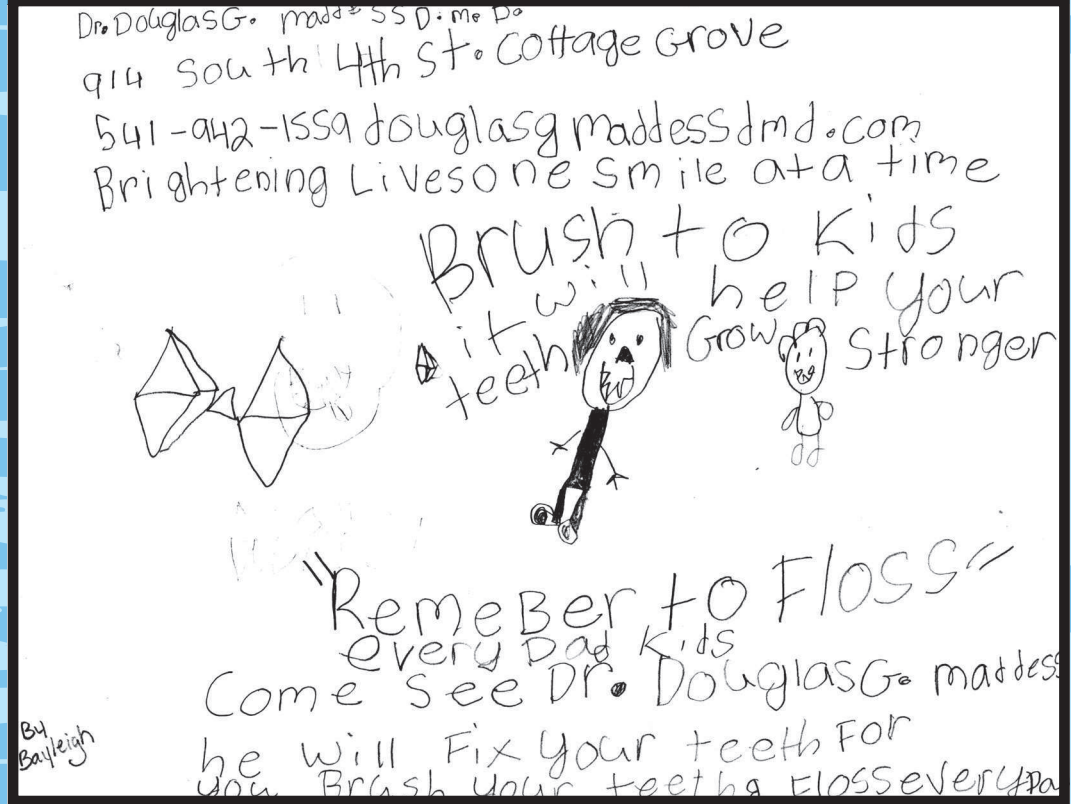 Dr. Douglas G. maddess D.m.D.
914 South 4th St. Cottage Grove
541-942-1559 douglasgmaddessdmd.com
Brightening Lives one smile at a time
Brush to Kids
it will help your
teeth Grow Stronger
"Remeber to Floss"
every Day Kids
Come See Dr. Douglas G. maddess
he will Fix your teeth For
you Brush your teeth & Floss every Da
By
Bayleigh